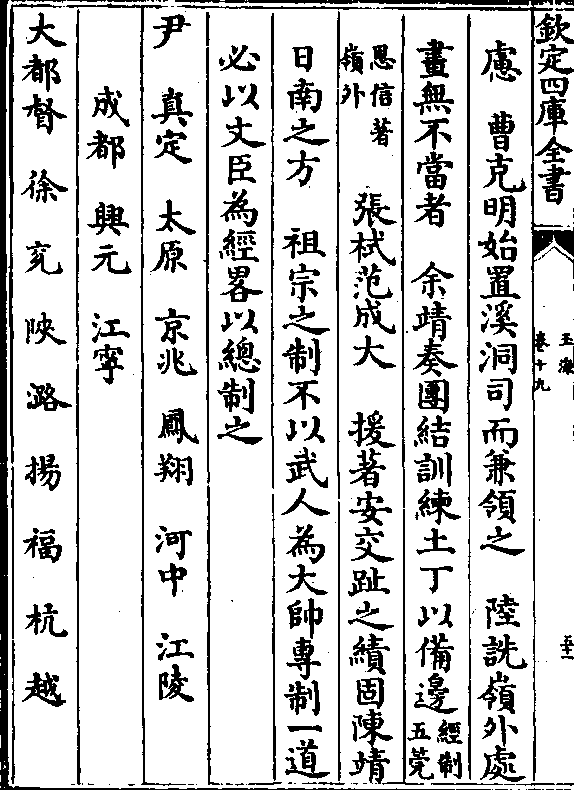 欽定四庫全書
玉海
卷十九
慮　曹克明始置溪洞司而兼領之　陸詵嶺外處
畫無不當者　余靖奏團結訓練土丁以備邊經制五筦
恩信著嶺外　張栻范成大　援著安交趾之績固陳靖
日南之方　祖宗之制不以武人為大帥專制一道
必以文臣為經畧以總制之
尹　真定　太原　京兆　鳳翔　河中　江陵
成都　興元　江寧
大都督　徐　兖　陜　潞　揚　福　杭　越